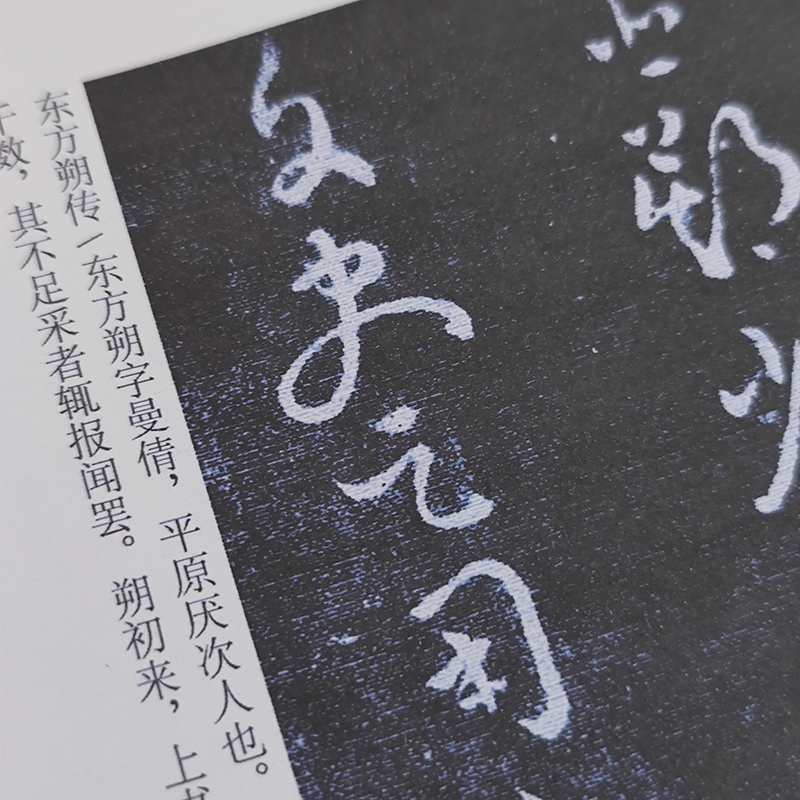 朔
文史足用
东方朔传/东方朔字曼倩，平原厌次人也。
千数，其不足采者辄报闻罢。朔初来，上